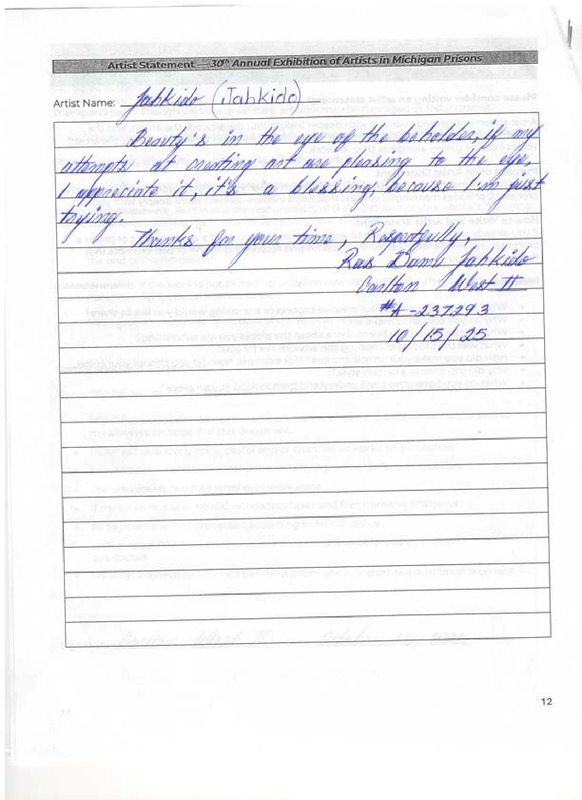 Artist Statement — 30th Annual Exhibition of Artists in Michigan Prisons
Artist Name: Jahkido (Jahkido)
Beauty's in the eye of the beholder, if my
attempts at creating art are pleasing to the eye,
I appreciate it, it's a blessing, because I'm just
trying.
Thanks for your time, Respectfully,
Ras Damu Jahkido
Carlton West II
#A-237293
10/15/25
12